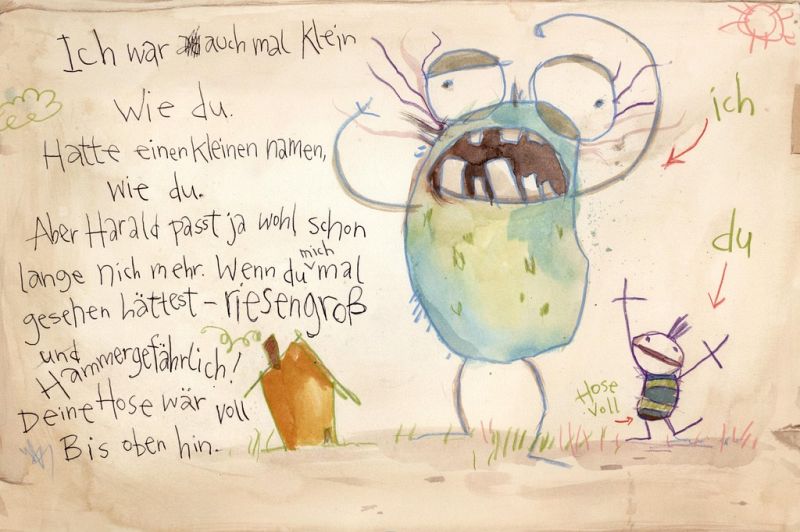 Ich war auch mal klein
Wie du.
Hatte einen kleinen namen,
wie du.
Aber Harald passt ja wohl schon
lange nich mehr. Wenn du mich mal
gesehen hättest – riesengroß
und
Hammergefährlich!
Deine Hose wär voll
Bis oben hin.
ich
du
Hose
voll